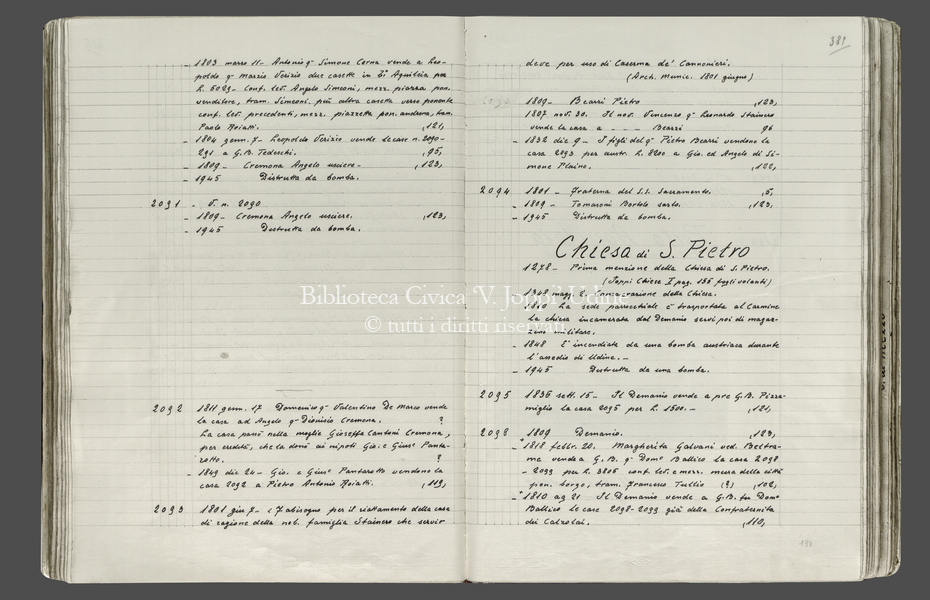 - 1803 marzo 11 - Antonio q.m Simone Cerna vende a Leo-
poldo q.m Marzio Verizio due casette in B.o Aquileia per
L. 5023 - Conf. lev. Angelo Simeoni, mezz. piazza pon.
venditore, tram. Simeoni. più altra casetta verso ponente
conf. lev. precedenti, mezz. piazzetta pon. androna, tram.
Paolo Roiatti. ,121,
- 1804 genn. 7 - Leopoldo Verizio vende le case n. 2090-
291 a G.B. Tedeschi. ,95,
- 1809 - Cremona Angelo usciere - ,123,
- 1945 Distrutta da bomba.
2091 - V. n. 2090
- 1809 - Cremona Angelo usciere. ,123,
- 1945 Distrutta da bomba.
2092 1811 genn. 17 Domenico q.m Valentino De Marco vende
la casa ad Angelo q.m Dionisio Cremona. ?
La casa passò nella moglie Gioseffa Cantoni Cremona,
per eredità, che la donò ai nipoti Gio. e Gius.e Panta-
rotto. ?
- 1849 dic 24 - Gio. e Gius.e Pantarotto vendono la
casa 2092 a Pietro Antonio Roiatti. ,119,
2093 1801 giu 7 - c 7 abisogno per il riattamento della casa
di ragione della nob. famiglia Stainero che servir
381
deve per uso di Caserma de' Cannonieri.
(Arch. Munic. 1801 giugno)
1809 - Bearzi Pietro ,123,
1807 nov. 30. Il not. Vincenzo q.m Leonardo Stainero
vende la casa a - - - Bearzi 96
- 1832 dic 9 - I figli del q.m Pietro Bearzi vendono la
casa 2093 per austr. L. 8200 a Gio. ed Angelo di Si-
mone Plaino. ,122,
2094 1801 - Fraterna del S.S. Sacramento. ,5,
- 1809 - Tomasoni Bortolo sarto. ,123,
- 1945 Distrutta da bomba.
Chiesa di S. Pietro
1278 - Prima menzione della Chiesa di S. Pietro.
(Joppi Chiese I pag. 155 fogli volanti)
1348 magg. 2. Consacrazione della Chiesa.
La sede parrocchiale è trasportata al Carmine
la chiesa incamerata dal Demanio servì poi di magaz-
zino militare.
- 1848 E' incendiata da una bomba austriaca durante
l'assedio di Udine. -
- 1945 Distrutta da una bomba.
2095 1836 sett. 15 - Il Demanio vende a pre G.B. Pizza-
miglio la casa 2095 per L. 1500. - ,121,
2098 - 1809 Demanio. ,123,
- 1818 febbr. 20. Margherita Galvani ved. Beltra-
me vende a G.B. q.m Dom.o Ballico la casa 2098
- 2099 per L. 3806 conf. lev. e mezz. mura della città
pon. borgo, tram. Francesco Tullio (?) ,102,
- 1810 ag 21 Il Demanio vende a G.B. fu Dom.o
Ballico le case 2098-2099 già della Confraternita
dei Calzolai. ,110,
Biblioteca Civica 'V. Joppi' Udine
© tutti i diritti riservati